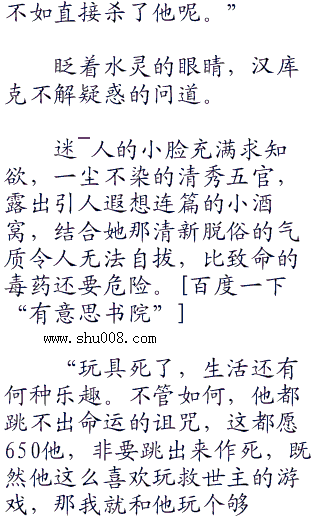 不如直接杀了他呢。”
眨着水灵的眼睛，汉库
克不解疑惑的问道。
迷¯人的小脸充满求知
欲，一尘不染的清秀五官，
露出引人遐想连篇的小酒
窝，结合她那清新脱俗的气
质令人无法自拔，比致命的
毒药还要危险。[百度一下
“有意思书院”]
www.shu008.com
“玩具死了，生活还有
何种乐趣。不管如何，他都
跳不出命运的诅咒，这都愿
650他，非要跳出来作死，既
然他这么喜欢玩救世主的游
戏，那我就和他玩个够